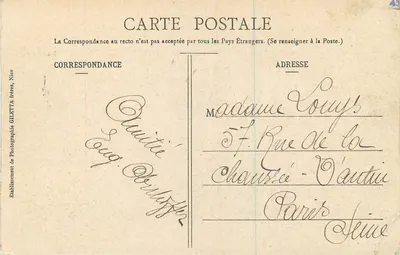 CARTE POSTALE
La Correspondance au recto n'est pas acceptée par tous les Pays Etrangers. (Se renseigner à la Poste.)
CORRESPONDANCE
ADRESSE
Etablissement de Photographie GILETTA frères, Nice
Amitié
Eug
Madame Louys
57, Rue de la
Chaussée-d'Antin
Paris
Seine